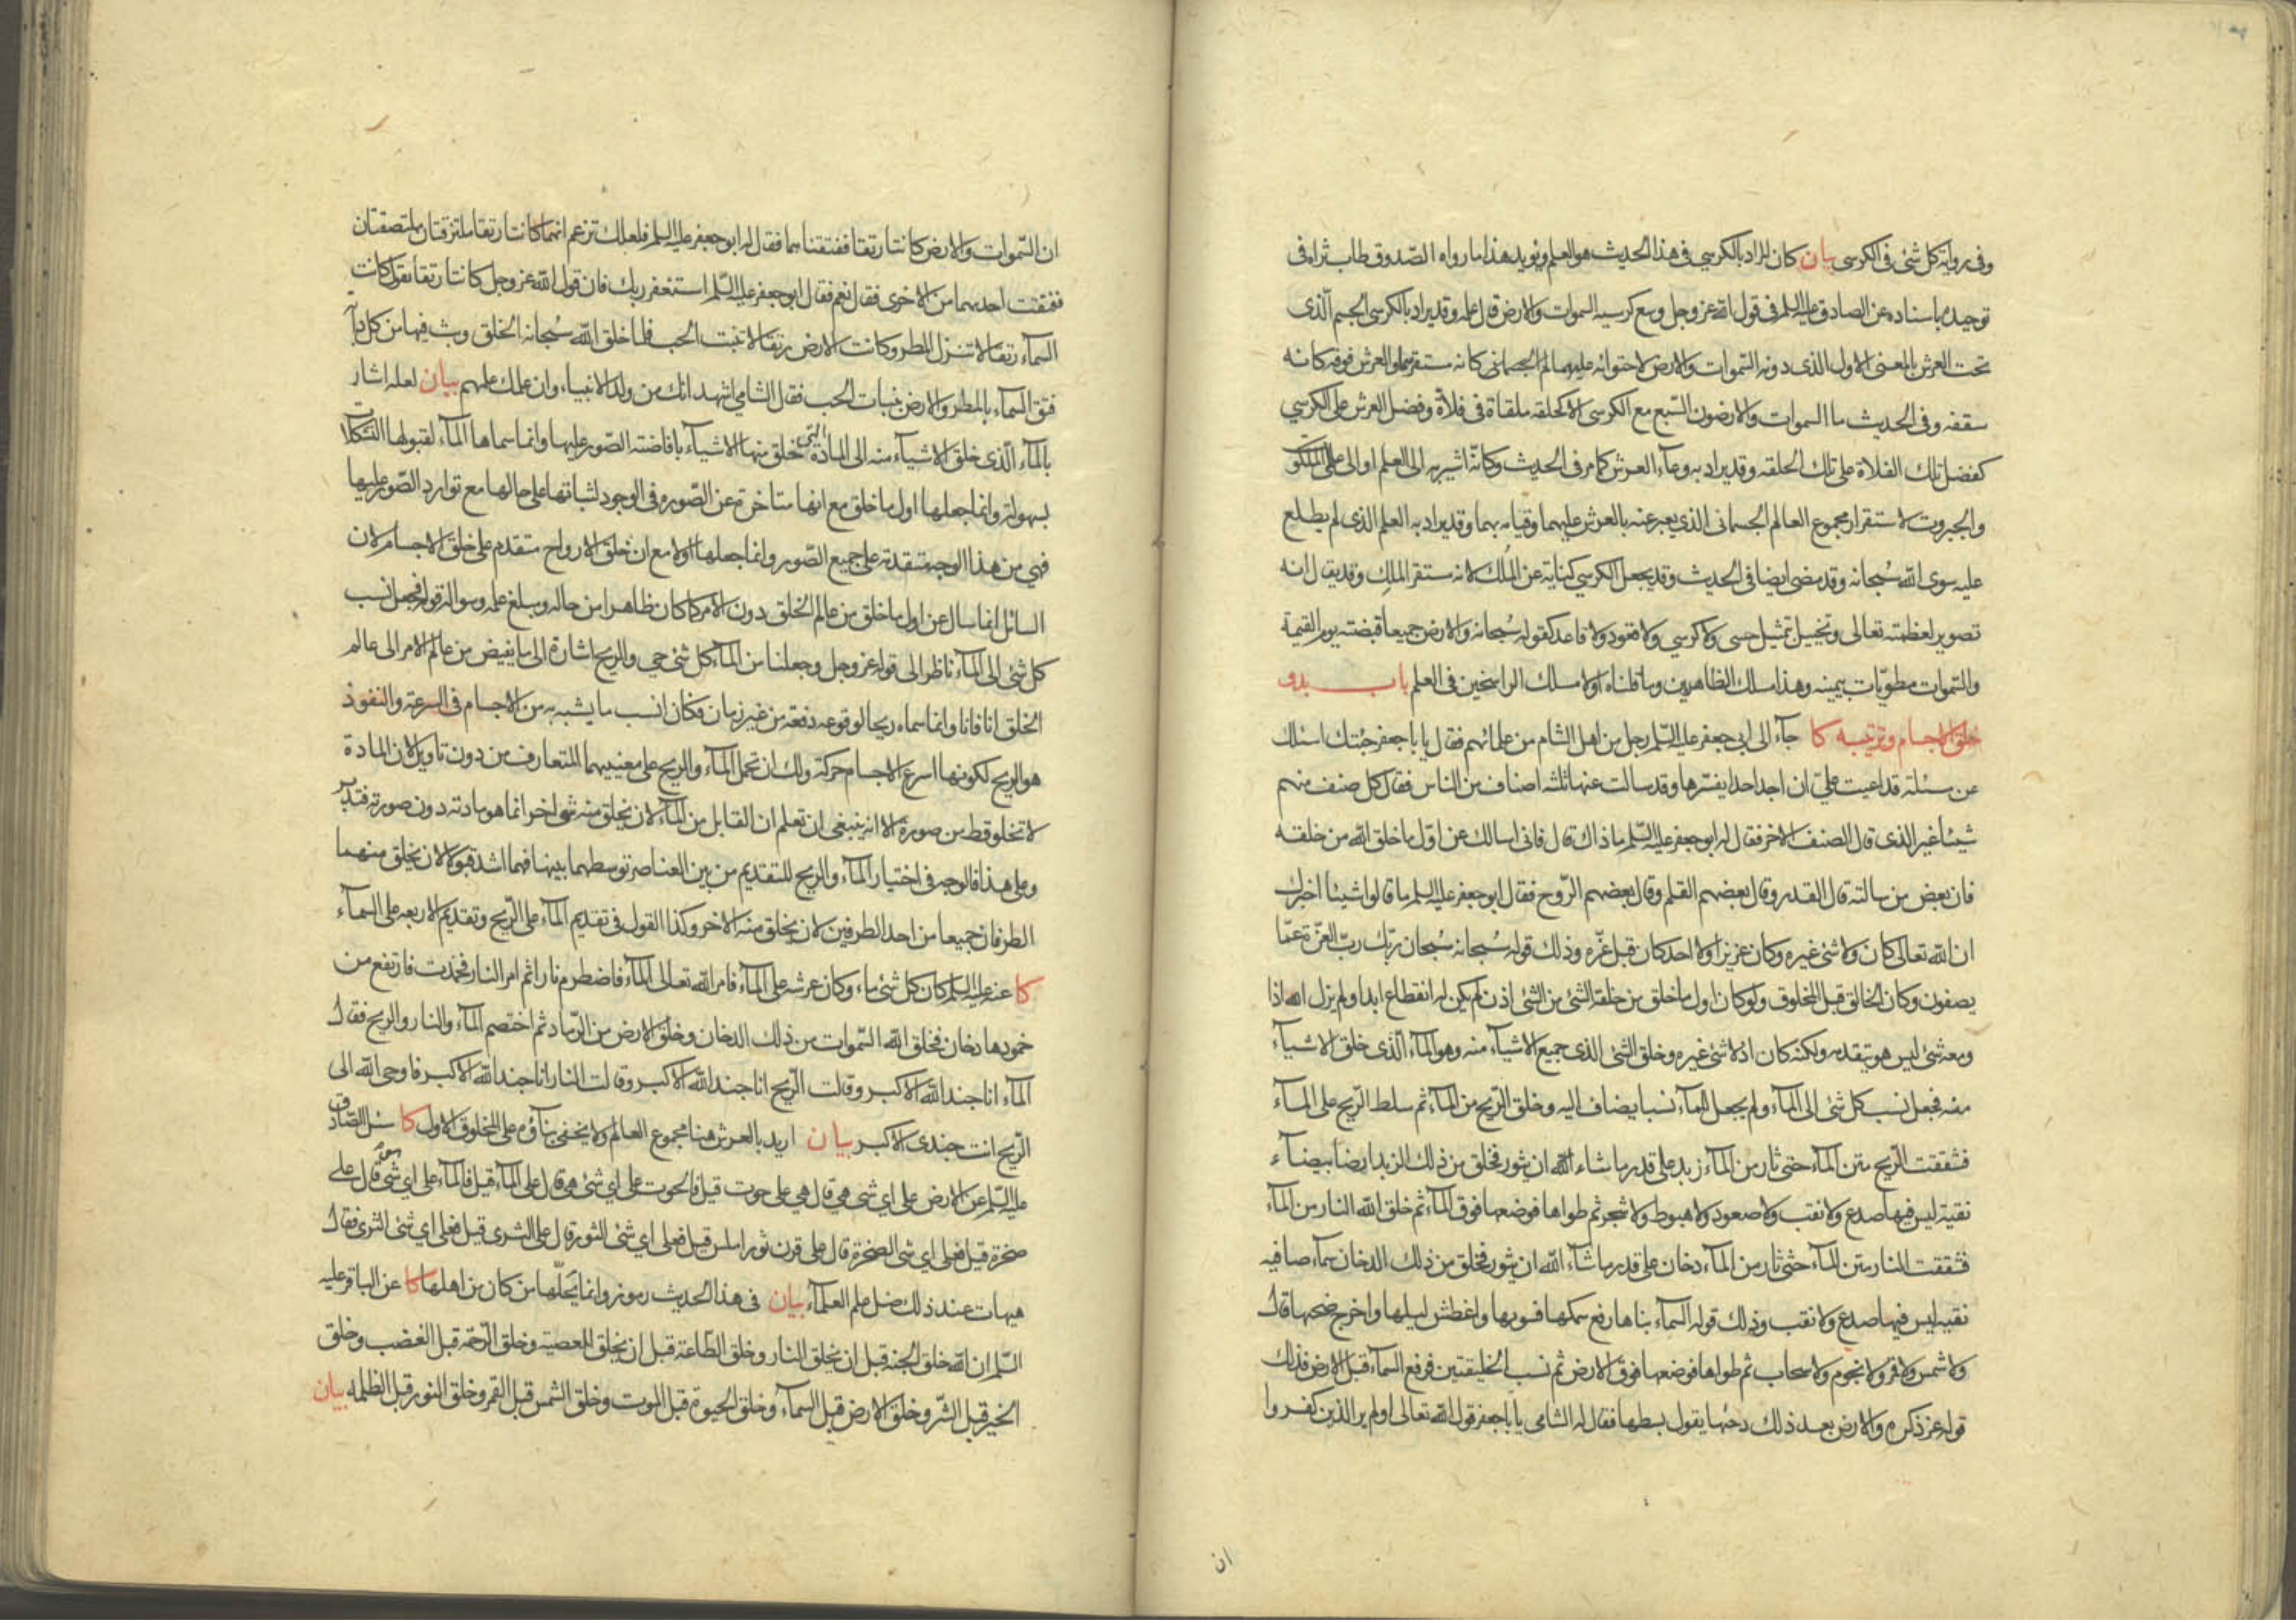 وفى رواية كل شئ فى الكرسى بيان كان المراد بالكرسي فى هذا الحديث هو العلم ويؤيد هذا ما رواه الصّدوق طاب ثراه فى
توحيده باسناده عن الصادق عليه السلم فى قول الله عز وجل وسع كرسيه السموات والارض قال علمه وقد يراد بالكرسى الجسم الّذى
تحت العرش بالمعنى الاول الذى دونه السّموات والارض لاحتوائه عليهما لم الجسمانى كانه مستقرهما والعرش فوقه كانه
سقفه وفى الحديث ما السموات والارضون السّبع مع الكرسى الا كحلقه ملقاة فى فلاة وفضل العرش على الكرسي
كفضل تلك الفلاة على تلك الحلقه وقد يراد به وعاء العرش كما مر فى الحديث وكانّه اشير به الى العلم او الى عالمى الملكوت
والجبروت لاستقرار مجموع العالم الجسمانى الذي يعبر عنه بالعرش عليهما وقيامه بهما وقد يراد به العلم الذى لم يطلع
عليه سوى الله سُبحانه وقد مضى ايضا فى الحديث وقد يجعل الكرسي كناية عن المُلك لانه مستقر الملِك وقد يقال انه
تصوير لعظمته تعالى وتخييل تمثيل حسى ولا كرسي ولا قعود ولا قاعد كقوله سُبحانه والارض جميعا قبضته يوم القيمة
والسّموات مطويّات بيمينه وهذا مسلك الظاهريين وما قلناه اولا مسلك الراسخين فى العلم باب بدو
خلق الاجسام وترتيبه كا جآء الى ابى جعفر عليه السّلم رجل من اهل الشام من علمائهم فقال يا باجعفر جئتك اسئلك
عن مسئلة قد اعيت على ان اجد احدا يفسّرها وقد سالت عنها ثلثه اصناف من الناس فقال كل صنف منهم
شيئا غير الذى قال الصنف الاخر فقال له ابو جعفر عليه السّلم ما ذاك قال فانى اسالك عن اوّل ما خلق الله من خلقه
فان بعض من سالته قال القدر وقال بعضهم القلم وقال بعضهم الرّوح فقال ابو جعفر عليه السلم ما قالوا شيئا اخبرك
ان الله تعالى كان ولا شئ غيره وكان عزيزا ولا احد كان قبل عزّه وذلك قوله سُبحانه سُبحان ربّك ربّ العزّة عمّا
يصفون وكان الخالق قبل المخلوق ولو كان اول ما خلق من خلقه الشئ من الشئ اذن لم يكن له انقطاع ابدا ولم يزل الله اذا
ومعه شئ ليس هو يتقدمه ولكنه كان اذ لا شئ غيره وخلق الشئ الذى جميع الاشيآء منه وهو المآء الّذى خلق الاشيآء
منه فجعل نسب كل شئ الى المآء ولم يجعل للمآء نسبا يضاف اليه وخلق الرّيح من المآء ثم سلط الرّيح على المآء
فشققت الرّيح متن المآء حتى ثار من المآء زبد على قدر ما شاء الله ان يثور فخلق من ذلك الزبد ارضا بيضآء
نقية ليس فيها صدع ولا نقب ولا صعود ولا هبوط ولا شجر ثم طواها فوضعها فوق المآء ثم خلق الله النار من المآء
فشققت النار متن المآء حتى ثار من المآء دخان على قدر ما شآء الله ان يثور فخلق من ذلك الدخان سمآء صافيه
نقيه ليس فيها صدع ولا نقب وذلك قوله السمآء بناها رفع سمكها فسويها واغطش ليلها واخرج ضحيها قال
ولا شمس ولا قمر ولا نجوم ولا سحاب ثم طواها فوضعها فوق الارض ثم نسب الخليقتين فرفع السمآء قبل الارض فذلك
قوله عز ذكره والارض بعد ذلك دحيها يقول بسطها فقال له الشامى يا باجعفر قول الله تعالى اولم ير الذين كفروا
ان
ان السّموات والارض كانتا رتقا ففتقناهما فقال له ابو جعفر عليه السلم فلعلك تزعم انهما كانتا رتقا ملتزقتان ملتصقتان
ففتقت احديهما من الاخرى فقال نعم فقال ابو جعفر عليه السّلم استغفر ربك فان قول الله عز وجل كانتا رتقا يقول كانت
السمآء رتقا لا تنزل المطر وكانت الارض رتقا لا تنبت الحب فلما خلق الله سُبحانه الخلق وبث فيها من كل دابّة
فتق السمآء بالمطر والارض بنبات الحب فقال الشامي اشهد انك من ولد الانبياء وان علمك علمهم بيان لعله اشار
بالمآء الّذى خلق الاشيآء منه الى المادة التى خلق منها الاشيآء بافاضته الصّور عليها وانما سماها المآء لقبولها التشكلات
بسهولة وانما جعلها اول ما خلق مع انها متاخرة عن الصّوره فى الوجود لثباتها على حالها مع توارد الصّور عليها
فهي من هذا الوجه متقدمة على جميع الصّور وانما جعلها اولا مع ان خلق الارواح متقدم على خلق الاجسام لان
السائل انما سال عن اول ما خلق من عالم الخلق دون الامر كما كان ظاهرا من حاله ومبلغ علمه وسواله قوله فجعل نسب
كل شئ الى المآء ناظر الى قوله عز وجل وجعلنا من المآء كل شئ حي والريح اشارة الى ما يفيض من عالم الامر الى عالم
الخلق انا فانا وانما سماه ريحا لوقوعه دفعة من غير زمان فكان انسب ما يشبه به من الاجسام فى السرعة والنفوذ
هو الريح لكونها اسرع الاجسام حركة ولك ان تحمل المآء والريح على معنييهما المتعارف من دون تاويل لان المادة
لا تخلو قط من صورة الا انه ينبغى ان تعلم ان القابل من المآء لان يخلق منه شئ اخر انما هو مادته دون صورته فتدبر
وعلى هذا فالوجه فى اختيار المآء والريح للتقديم من بين العناصر توسطهما بينها فهما اشد قبولا لان يخلق منهما
الطرفان جميعا من احد الطرفين لان يخلق منه الاخر وكذا القول فى تقديم المآء على الرّيح وتقديم الاربعه على السمآء
كا عنه عليه السلم كان كل شئ ماء وكان عرشه على المآء فامر الله تعالى المآء فاضطرم نارا ثم امر النار فخمدت فارتفع من
خمودها دخان فخلق الله السّموات من ذلك الدخان وخلق الارض من الرّماد ثم اختصم المآء والنار والريح فقال
المآء انا جند الله الاكبر وقالت الرّيح انا جند الله الاكبر وقالت النار انا جند الله الاكبر فاوحى الله الى
الرّيح انت جندى الاكبر بيان اريد بالعرش هنا مجموع العالم ولا يخفى بنآؤه على المخلوق الاول كا سئل الصّادق
عليه السّلم عن الارض على اي شئ هي قال هي على حوت قيل فالحوت على اي شئ هو قال على المآء قيل فالمآء على اي شئ هو قال على
صخرة قيل فعلى اي شئ الصخرة قال على قرن ثور املس قيل فعلى اي شئ الثور قال على الثرى قيل فعلى اي شئ الثرى فقال
هيهات عند ذلك ضل علم العلمآء بيان فى هذا الحديث رموز وانما يَحلّها من كان من اهلها كا عن الباقر عليه
السّلم ان الله خلق الجنه قبل ان يخلق النار وخلق الطّاعة قبل ان يخلق المعصية وخلق الرّحمة قبل الغضب وخلق
الخير قبل الشّر وخلق الارض قبل السمآء وخلق الحيوة قبل الموت وخلق الشمس قبل القمر وخلق النور قبل الظلمه بيان